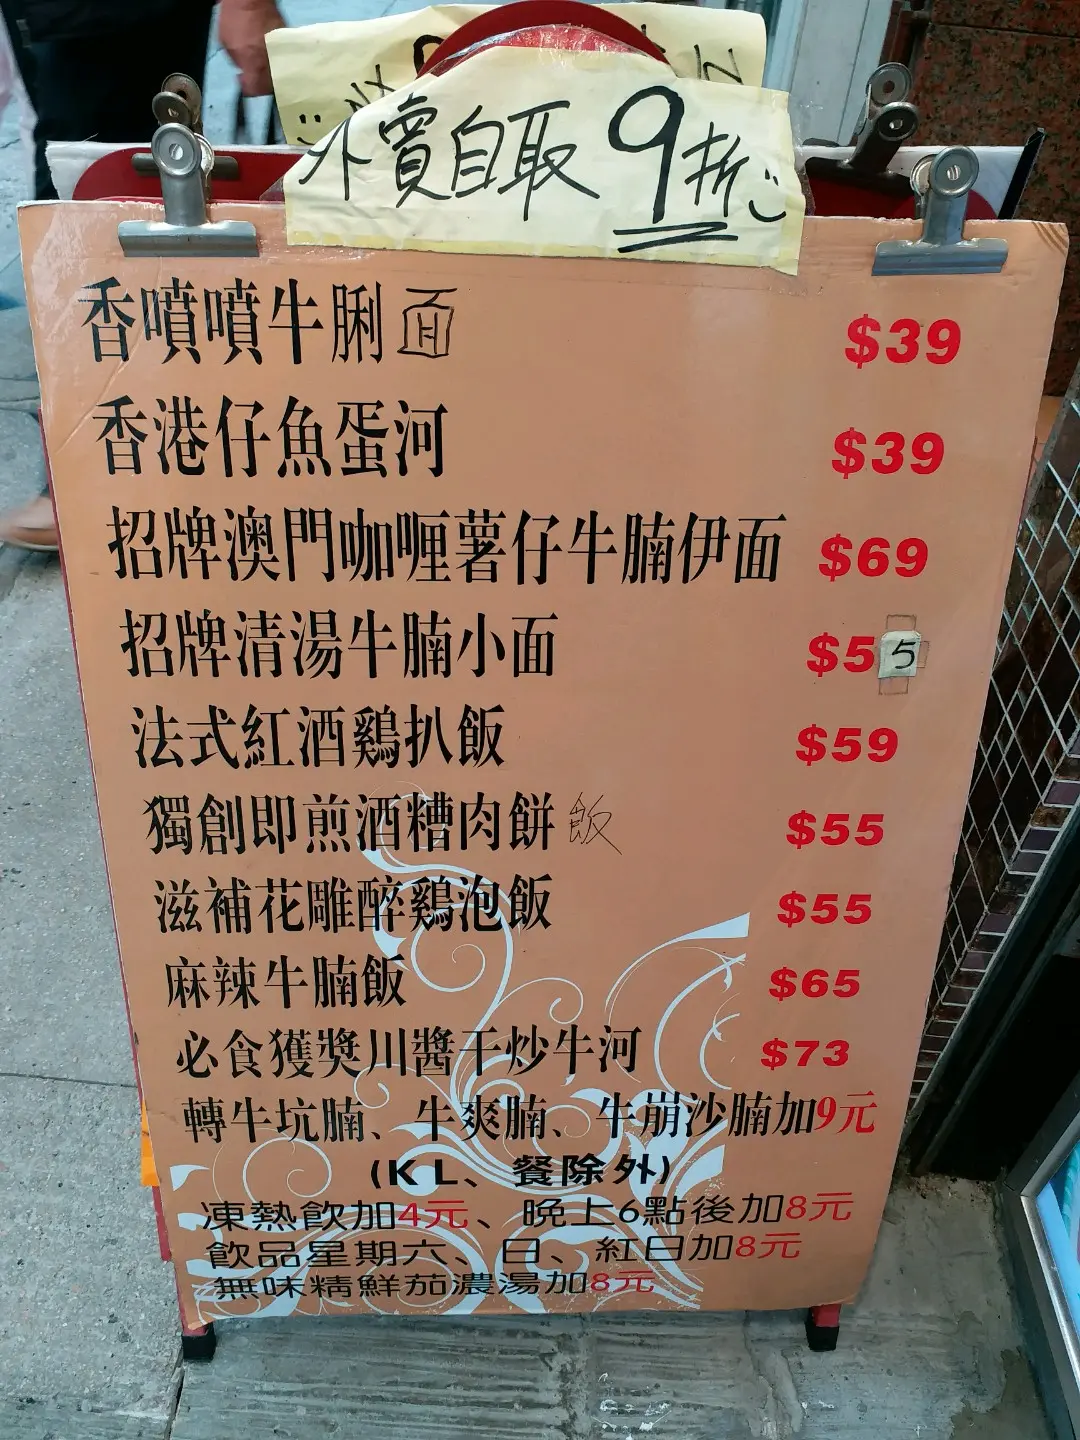 外賣自取9折
香噴噴牛脷面 $39
香港仔魚蛋河 $39
招牌澳門咖喱薯仔牛腩伊面 $69
招牌清湯牛腩小面 $55
法式紅酒鷄扒飯 $59
獨創即煎酒糟肉餅飯 $55
滋補花雕醉鷄泡飯 $55
麻辣牛腩飯 $65
必食獲獎川醬干炒牛河 $73
轉牛坑腩、牛爽腩、牛崩沙腩加9元
(KL、餐除外)
凍熱飲加4元、晚上6點後加8元
飲品星期六、日、紅日加8元
無味精鮮茄濃湯加8元